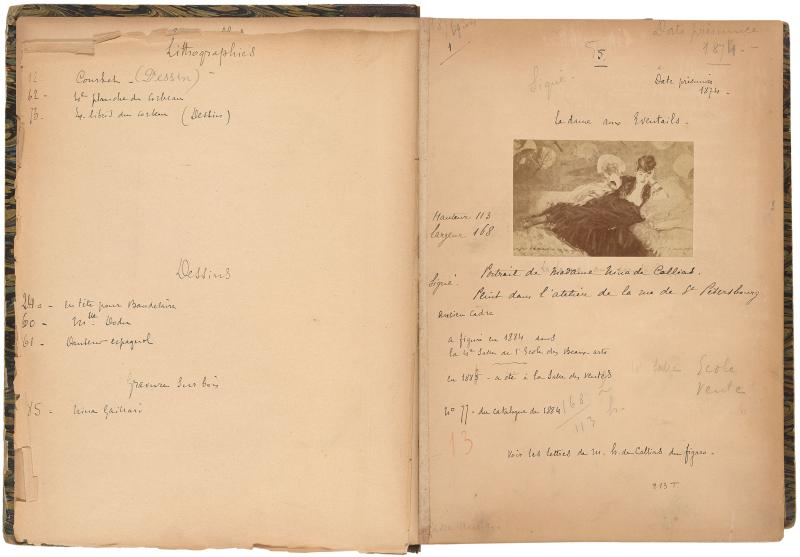 Lithographies
12 Courbet - (Dessin) -
62 - 4e planche du corbeau
73. Ex libris du corbeau (Dessin)
Dessins
24 - en tête pour Baudelaire
60 - Mlle Dodu
61 - Danseur espagnol
Gravure sur bois
85 - Nina Gaillard
1
5
Date présumée
1874. -
Signé.
Date présumée
1874 -
La dame aux Eventails.
Hauteur 113
Largeur 168
Signé.
Portrait de Madame Nina de Callias.
Peint dans l'atelier de la rue de St Pétersbourg
Ancien cadre
a figuré en 1884 dans
la 4e Salle de l'Ecole des Beaux-arts
en 1883 - a été à la Salle des Ventes
Salle Ecole
Vente
No 77 - du catalogue de 1884
168
113 h.
13
Voir les lettres de M. h. de Callias du figaro.
213 T